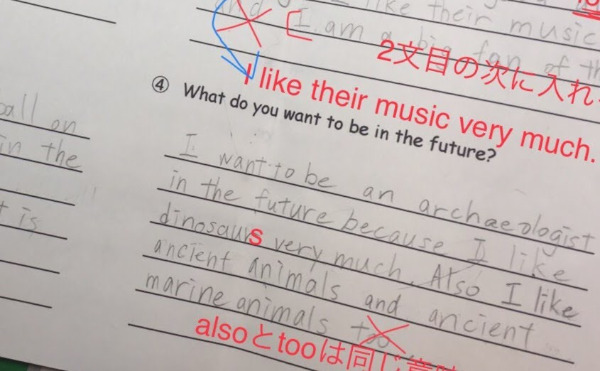 like their music
I am a big fan of th
2文目の次に入れ
I like their music very much.
④ What do you want to be in the future?
ball on
in the
t is
I want to be an archaeologist
in the future because I like
dinosaurs very much. Also I like
ancient animals and ancient
marine animals too
alsoとtooは同じ意味